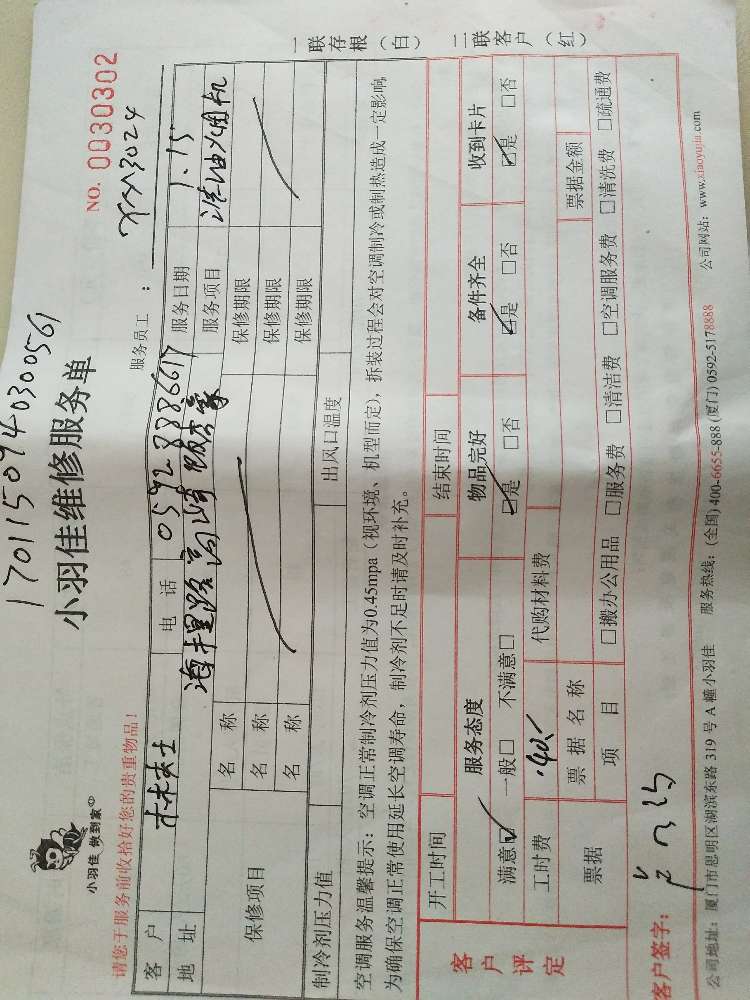 1701150940300561
小羽佳 做到家
小羽佳维修服务单
NO. 0030302
请您于服务前收拾好您的贵重物品!
服务员工:
XXA3024
客户 林女士 电话 服务日期 1.15
地址 服务项目 洗油烟机
保修项目 名称 保修期限
名称 保修期限
名称 保修期限
制冷剂压力值 出风口温度
空调服务温馨提示:空调正常制冷剂压力值为0.45mpa(视环境、机型而定),拆装过程会对空调制冷或制热造成一定影响
为确保空调正常使用延长空调寿命,制冷剂不足时请及时补充。
客户评定
开工时间 结束时间
服务态度 物品完好 备件齐全 收到卡片
满意☑ 一般□ 不满意□ ☑是 □否 ☑是 □否 ☑是 □否
工时费 代购材料费
票据 票据名称 票据金额
项目 □搬办公用品 □服务费 □清洁费 □空调服务费 □清洗费 □疏通费
客户签字:
公司地址:厦门市思明区湖滨东路 319 号 A 幢小羽佳 服务热线:(全国) 400-6655-888 (厦门) 0592-5178888 公司网站:www.xiaoyujia.com
一联存根(白) 二联客户(红)